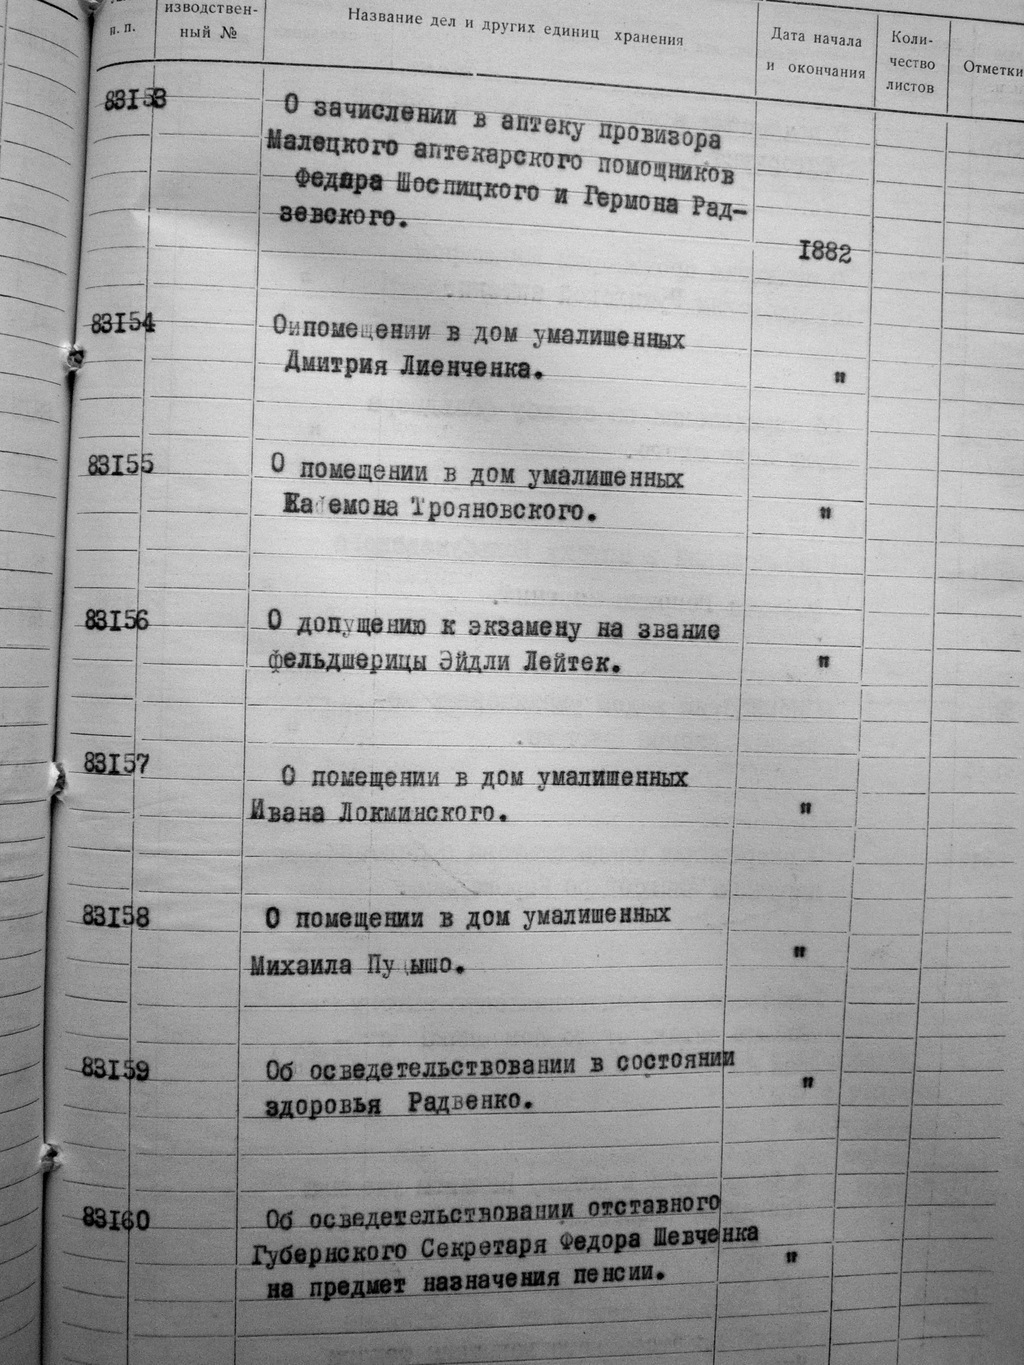 изводствен-
п. п.
ный №
Название дел и других единиц хранения
Дата начала
и окончания
Коли-
чество
листов
Отметки
83153
О зачислении в аптеку провизора
Малецкого аптекарского помощников
Федора Шоспицкого и Гермона Рад-
зевского.
1882
83154
Оипомещении в дом умалишенных
Дмитрия Лиенченка.
"
83155
О помещении в дом умалишенных
Трояновского.
"
83156
О допущению к экзамену на звание
фельдшерицы Эйдли Лейтек.
"
83157
О помещении в дом умалишенных
Ивана Локминского.
"
83158
О помещении в дом умалишенных
Михаила
"
83159
Об осведетельствовании в состоянии
здоровья Радвенко.
"
83160
Об осведетельствовании отставного
Губернского Секретаря Федора Шевченка
на предмет назначения пенсии.
"